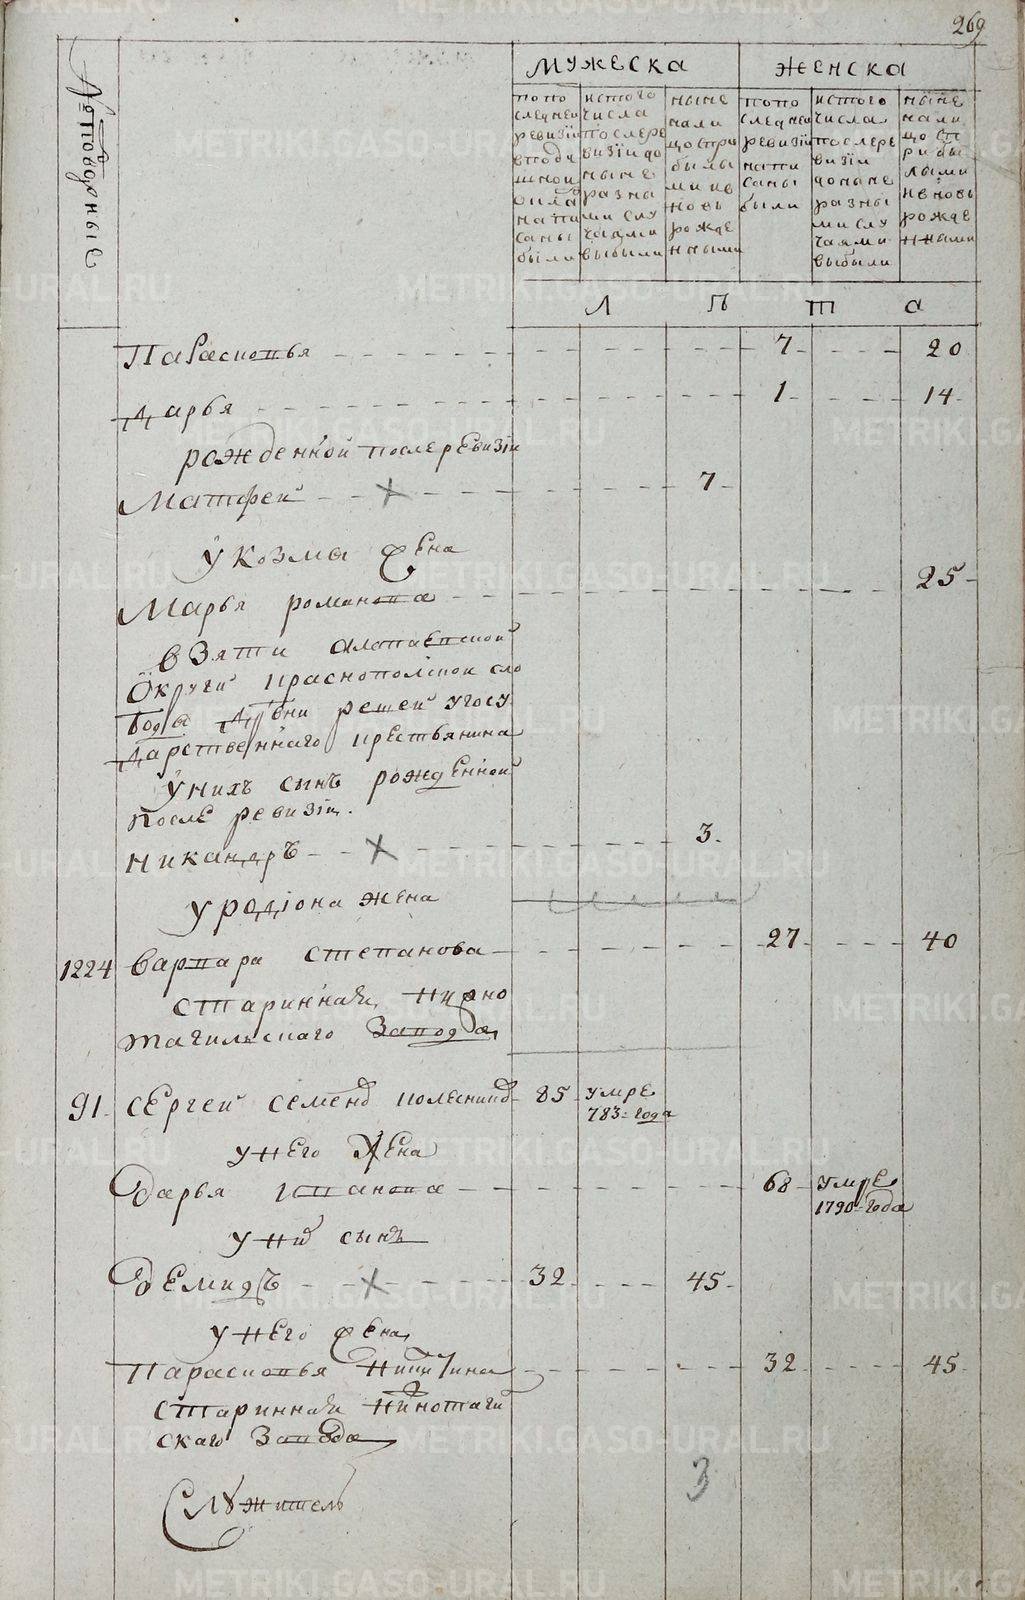 269
Мужеска
Женска
по по
следней
ревизии
в поду
шной
оклад
написаны
были
ис того
числа
после ре
визіи до
ныне
разны
ми слу
чаями
выбыли
ныне
на ли
цо с при
былы
ми и в
новь
рожде
нными
по по
следней
ревизіи
напи
саны
были
ис того
числа
после ре
визіи
до ныне
разны
ми слу
чаями
выбыли
ныне
на ли
цо с п
рибы
лыми
и в новь
рожде
нными
Л ѣ т а
Парасковья 7 20
Дарья 1 14
рожденной после ревизіи
Матфей × 7
у Козмы жена
Марья романова 25
в Зяти алапаевской
Округи краснопольской сло
боды Д/вни решей у госу
дарственнаго крестьянина
у нихъ сынъ рожденной
после ревизіи.
Никандръ × 3.
у родіона жена
1224 варвара степанова 27 40
старинная Нижно
тагильскаго Завода
91. Сергей семенов 85 умре
783= года
у него Жена
Дарья иванова 68 умре
1790= года
у них сынъ
Демидъ × 32 45
у него жена
Парасковья Никитина 32 45
старинная Нижнотаги
скаго Завода
3
Служитель
METRIKI.GASO-URAL.RU